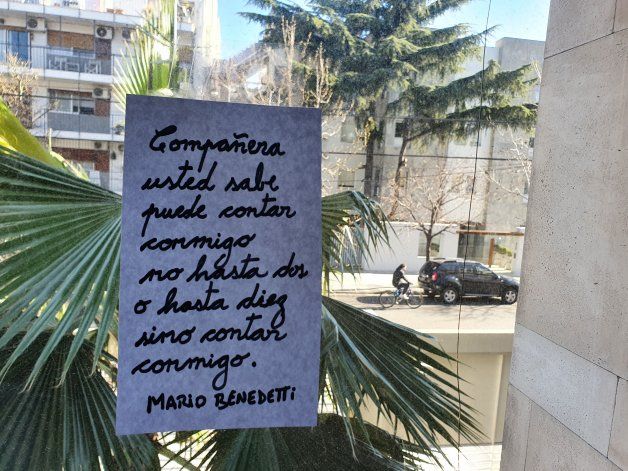 Compañera
usted sabe
puede contar
conmigo
no hasta dos
o hasta diez
sino contar
conmigo.
MARIO BENEDETTI